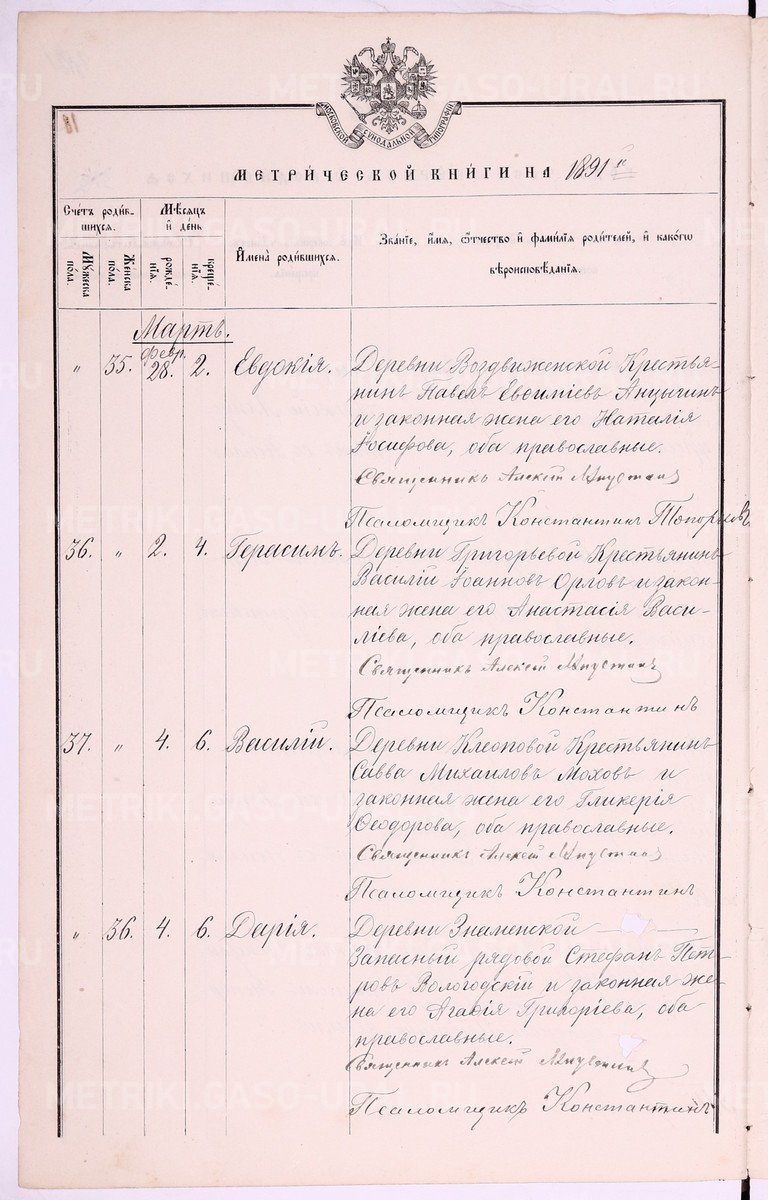 МОСКОВСКОЙ СУНОДАЛЬНОЙ ТИПОГРАФІИ
МЕТРИ́ЧЕСКОЙ КНИ́ГИ НА 1891 й
Сче́тъ роди́в-
шихся.
Мꙋ́жеска по́ла.
Же́нска по́ла.
Мѣ́сяцъ
и҆ де́нь
рожде́-
нїя.
креще́-
нїя.
И҆мена̀ роди́вшихся.
Зва́нїе, и҆́мя, ѻ҆́тчество и҆ фами́лїя роди́телей, и҆ како́гѡ
вѣроисповѣ́данїя.
Мартъ.
„ 35. февр. 28. 2. Евдокія. Деревни Воздвиженской Крестья-
нинъ Павелъ Евѳиміевъ Анцычинъ
и законная жена его Наталія
Іосифова, оба православные.
Священникъ Алексѣй
Псаломщикъ Константинъ Топорковъ
36. „ 2. 4. Герасимъ. Деревни Григорьевой Крестьянинъ
Василій Іоанновъ Орловъ и закон-
ная жена его Анастасія Васи-
ліева, оба православные.
Священникъ Алексѣй
Псаломщикъ Константинъ
37. „ 4. 6. Василій. Деревни Клеоповой Крестьянинъ
Савва Михаиловъ Моховъ и
законная жена его Гликерія
Ѳеодорова, оба православные.
Священникъ Алексѣй
Псаломщикъ Константинъ
„ 36. 4. 6. Дарія. Деревни Знаменской
Запасный рядовой Стефанъ Пет-
ровъ Вологодскій и законная же-
на его Агаѳія Григоріева, оба
православные.
Священникъ Алексѣй
Псаломщикъ Константинъ
METRIKI.GASO-URAL.RU